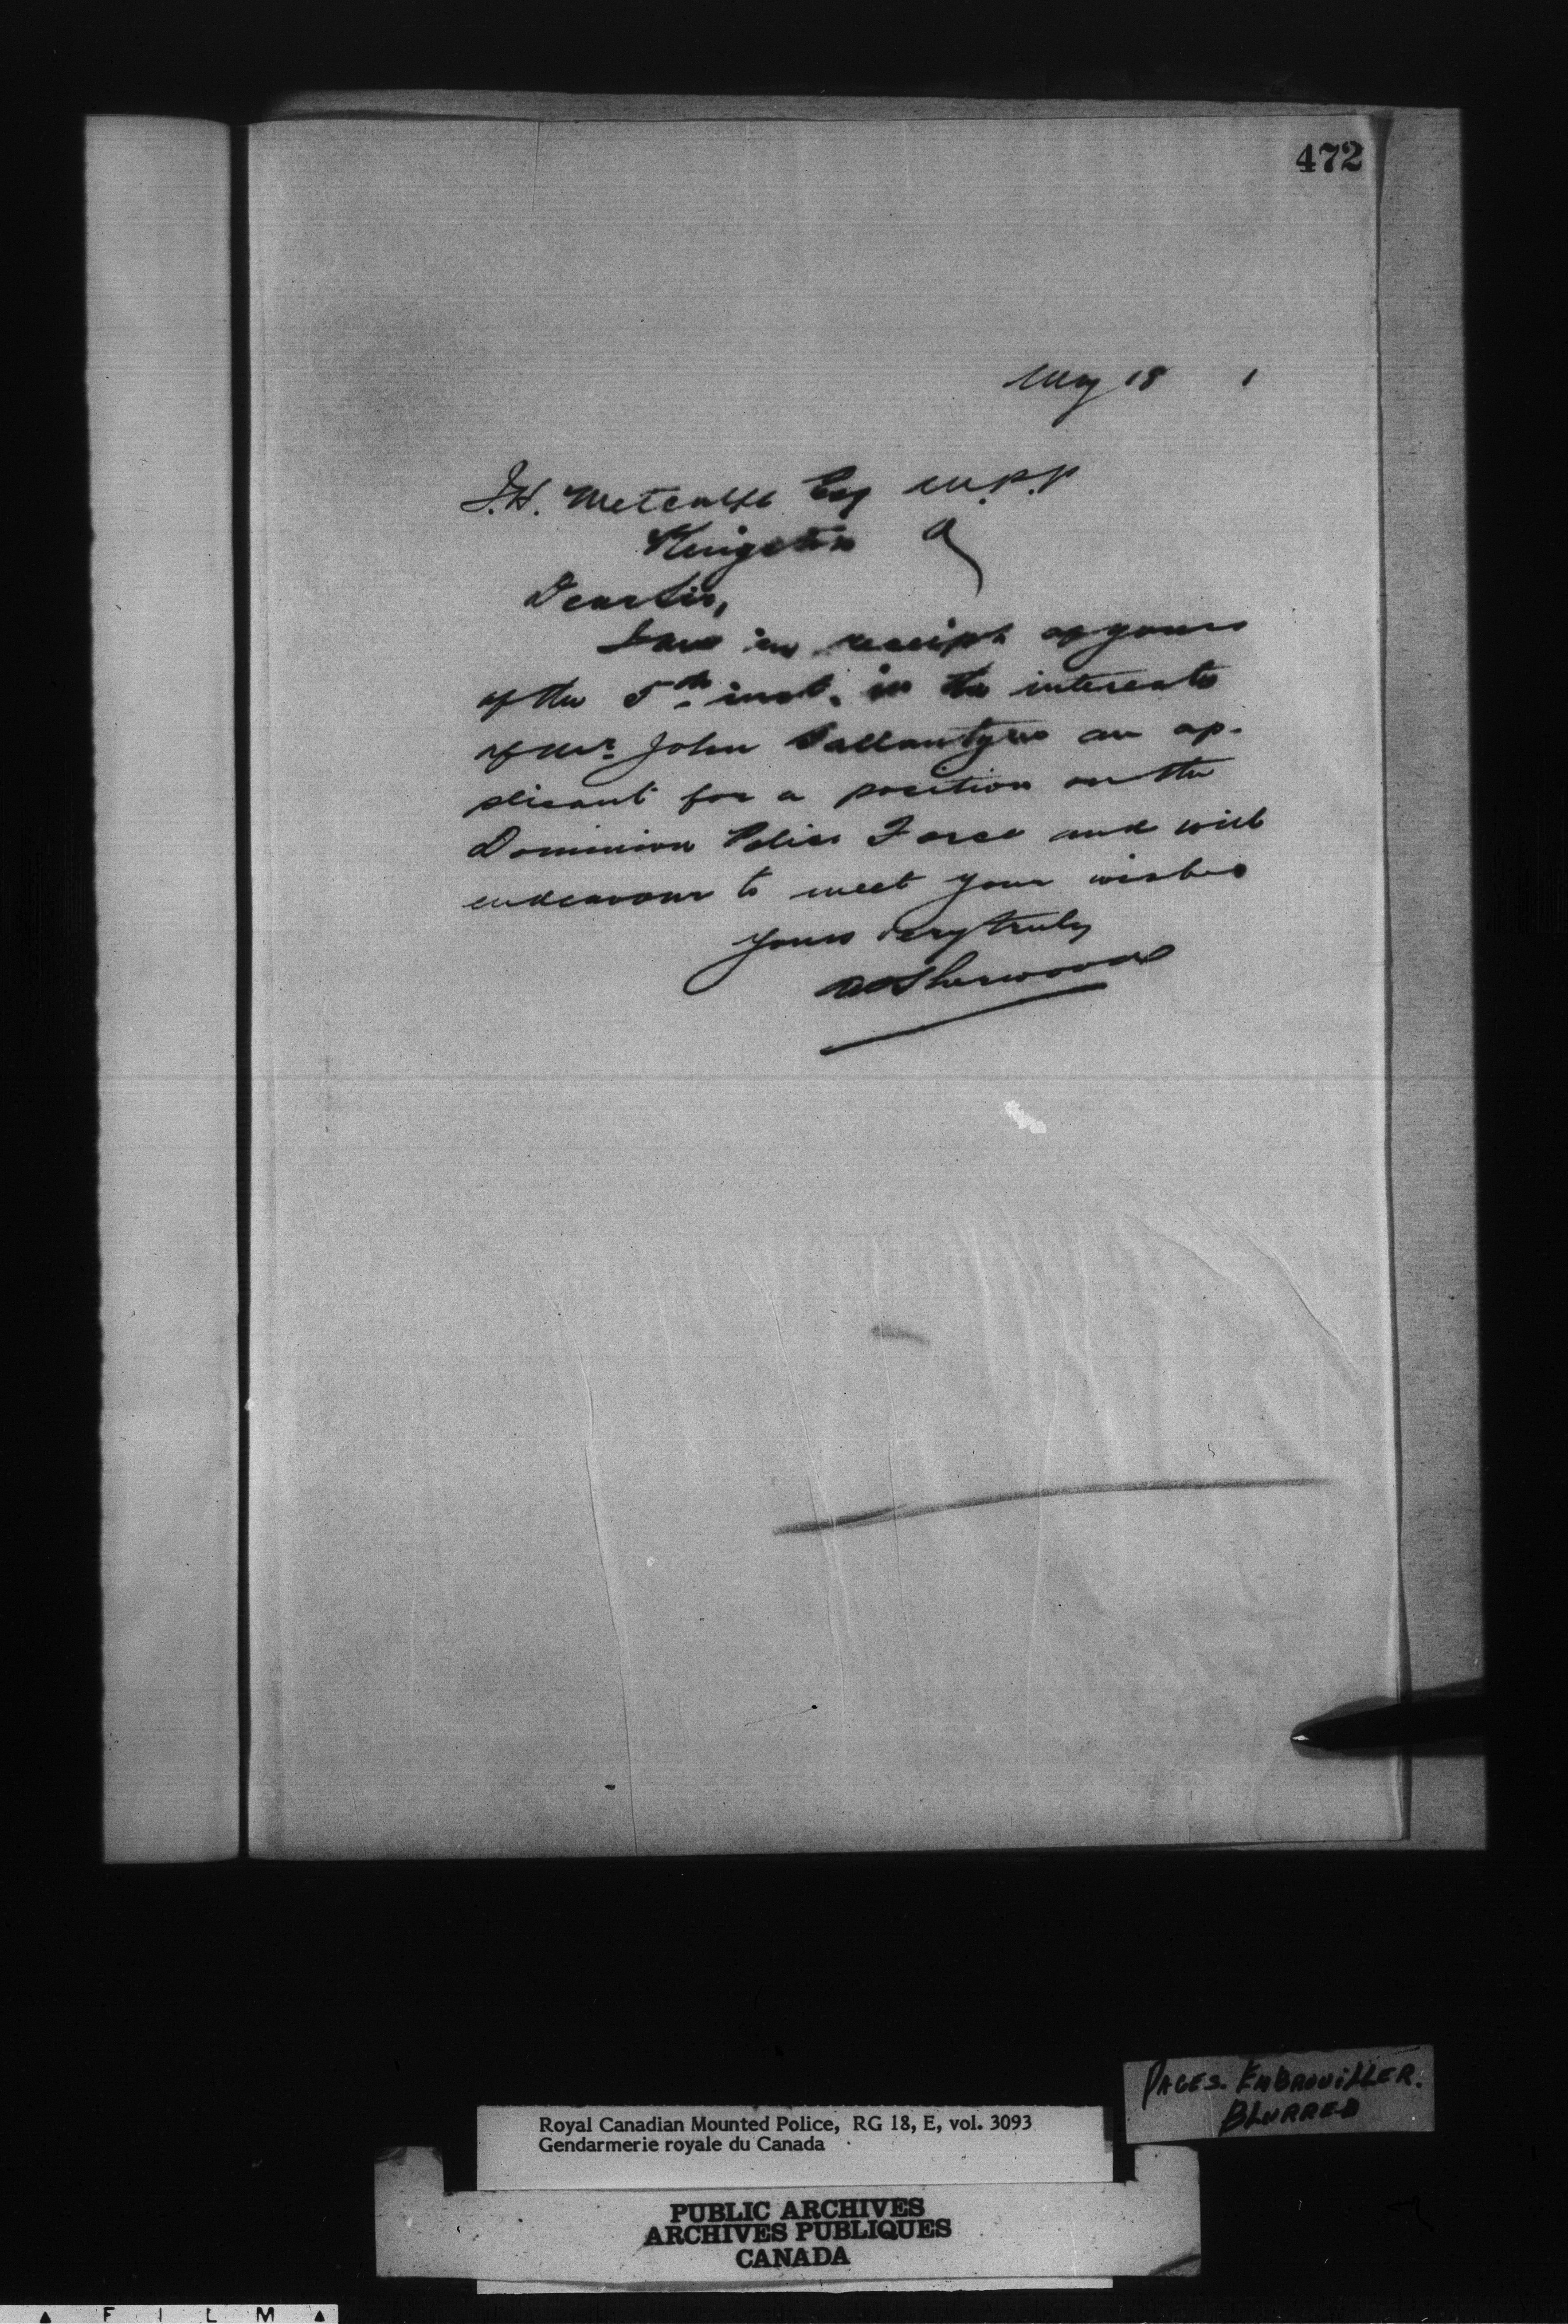 472
May 18 1
J.H. Metcalfe Esq M.P.P
Kingston O
Dear Sir,
I am in receipt of yours
of the 5th inst. in the interests
of Mr John Ballantyne an ap-
plicant for a position on the
Dominion Police Force and will
endeavour to meet your wishes
Yours very truly
A P Sherwood
PAGES. EMBROUILLER.
BLURRED
Royal Canadian Mounted Police, RG 18, E, vol. 3093
Gendarmerie royale du Canada
PUBLIC ARCHIVES
ARCHIVES PUBLIQUES
CANADA
FILM